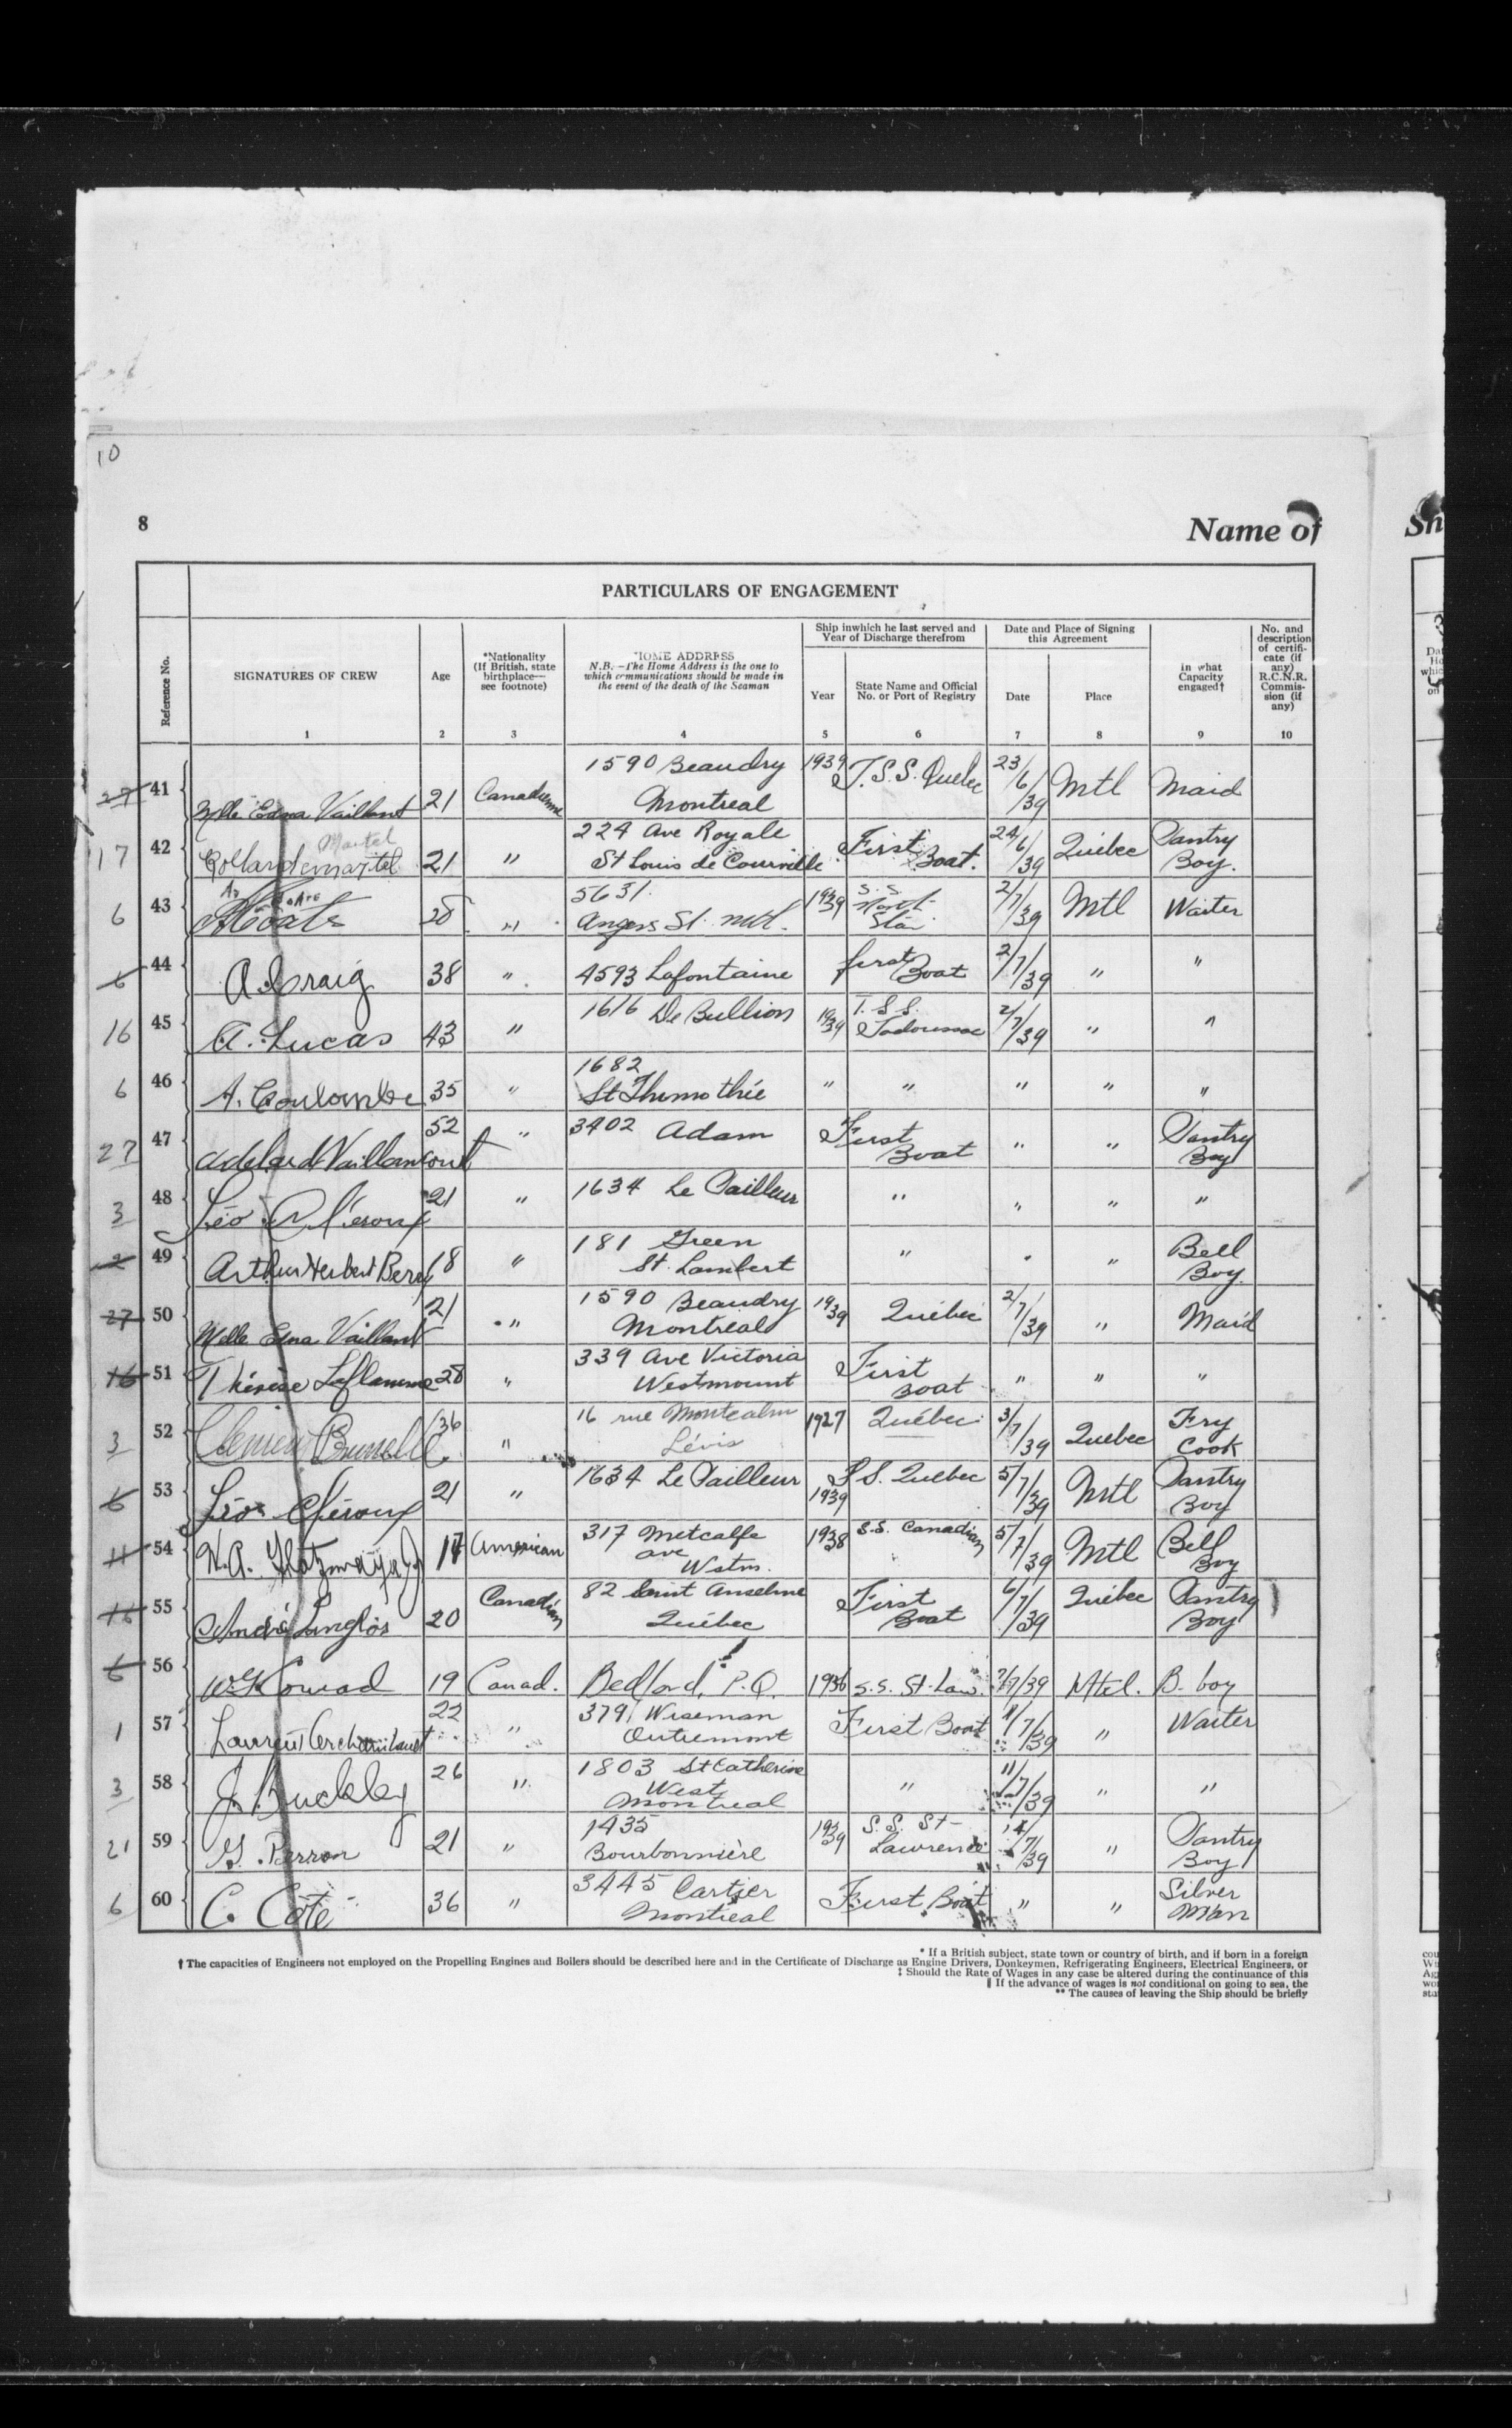 10
8
Name of
Sh
PARTICULARS OF ENGAGEMENT
Reference No.
SIGNATURES OF CREW
Age
*Nationality
(If British, state
birthplace—
see footnote)
HOME ADDRESS
N.B.—The Home Address is the one to
which communications should be made in
the event of the death of the Seaman
Ship in which he last served and
Year of Discharge therefrom
Year
State Name and Official
No. or Port of Registry
Date and Place of Signing
this Agreement
Date
Place
in what
Capacity
engaged†
No. and
description
of certifi-
cate (if
any)
R.C.N.R.
Commis-
sion (if
any)
1 2 3 4 5 6 7 8 9 10
27 41 Mlle Edna Vaillant 21 Canadienne 1590 Beaudry Montreal 1939 T.S.S. Quebec 23/6/39 Mtl Maid
17 42 Martel 21 " 224 Ave Royale St Louis de Courville First Boat. 24/6/39 Québec Pantry Boy.
6 43 28 " 5631 Angers St. Mtl. 1939 S.S. North Star 2/7/39 Mtl Waiter
6 44 A. Craig 38 " 4593 Lafontaine first Boat 2/7/39 " "
16 45 A. Lucas 43 " 1616 De Bullion 1939 T.S.S. Tadoussac 2/7/39 " "
6 46 A. Coulombe 35 " 1682 St Thimothée " " " " "
27 47 Adelard Vaillancourt 52 " 3402 Adam First Boat " " Pantry Boy
3 48 Léo 21 " 1634 Le Tailleur " " " "
2 49 Arthur Herbert Berry 18 " 181 Green St. Lambert " " " Bell Boy
27 50 Mdlle Edna Vaillant 21 " 1590 Beaudry Montreal 1939 Québec 2/7/39 " Maid
16 51 Thérèse Laflamme 28 " 339 Ave Victoria Westmount First Boat " " "
3 52 Clement Brunelle 36 " 16 rue Montcalm Lévis 1927 Québec 3/7/39 Quebec Fry Cook
6 53 Léo 21 " 1634 Le Tailleur 1939 S.S. Quebec 5/7/39 Mtl Pantry Boy
11 54 H.A. 17 American 317 Metcalfe ave Wstm. 1938 S.S. Canadian 5/7/39 Mtl Bell Boy
16 55 André Langlois 20 Canadian 82 Saint Anselme Québec First Boat 6/7/39 Québec Pantry Boy
6 56 Conrad 19 Canad. Bedford, P.Q. 1936 S.S. St-Law. 7/7/39 Mtl. B. boy
1 57 Laurent Archambault 22 " 379 Wiseman Outremont First Boat 11/7/39 " Waiter
3 58 J. Buckley 26 " 1803 St Catherine West Montreal " 11/7/39 " "
21 59 G. Perron 21 " 1435 Bourbonnière 1939 S.S. St-Lawrence 14/7/39 " Pantry Boy
6 60 C. Côté 36 " 3445 Cartier Montreal First Boat " " Silver Man
* If a British subject, state town or country of birth, and if born in a foreign
† The capacities of Engineers not employed on the Propelling Engines and Boilers should be described here and in the Certificate of Discharge as Engine Drivers, Donkeymen, Refrigerating Engineers, Electrical Engineers, or
‡ Should the Rate of Wages in any case be altered during the continuance of this
‖ If the advance of wages is not conditional on going to sea, the
** The causes of leaving the Ship should be briefly